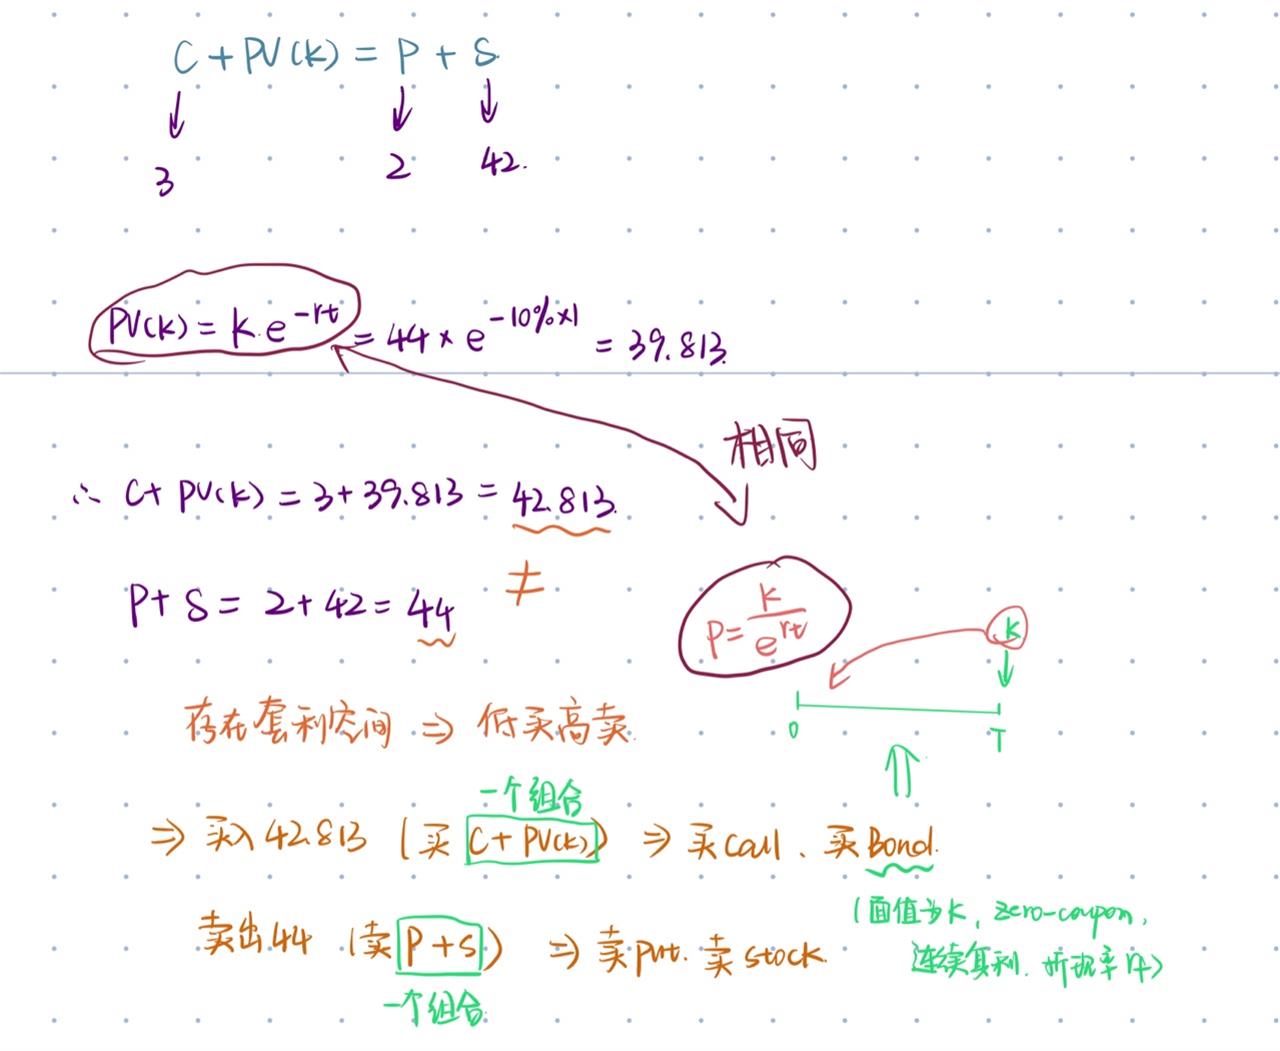 C + PV(K) = P + S
3 2 42.
PV(K) = K·e^-rt = 44 × e^-10%×1 = 39.813
相同
∴ C + PV(K) = 3 + 39.813 = 42.813
≠
P + S = 2 + 42 = 44
P = K / e^rt
K
0 T
存在套利空间 ⇒ 低买高卖.
一个组合
⇒ 买入 42.813 (买 C + PV(K)) ⇒ 买 call、买 Bond.
(面值为K, zero-coupon,
连续复利, 折现率 rf)
卖出 44 (卖 P + S) ⇒ 卖 put. 卖 stock.
一个组合.